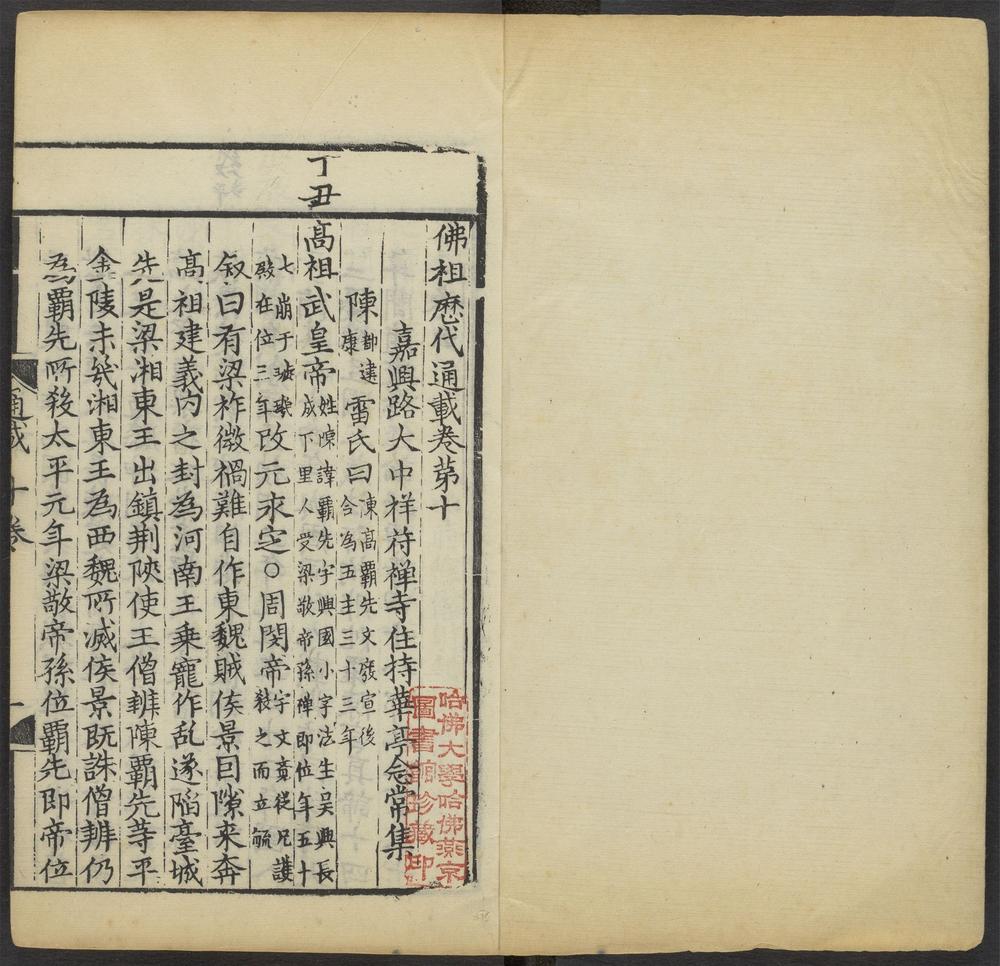 佛祖歷代通載卷第十
嘉興路大中祥符禅寺住持華亭念常集
陳都建康雷氏曰陳高霸先文廢宣後合為五主三十三年
丁丑
高祖武皇帝姓陳諱霸先字興國小字法生吴興長成下里人受梁敬帝孫禅即位年五十
七崩于璇璣殿在位三年改元永定○周閔帝字文竟從兄護殺之而立毓
叙曰有梁祚微禍難自作東魏賊侯景囙隙来奔
高祖建義内之封為河南王乗寵作乱遂陷臺城
先是梁湘東王出鎮荆陜使王僧辨陳霸先等平
金陵未㡬湘東王為西魏所滅侯景既誅僧辨仍
為霸先所殺太平元年梁敬帝孫位霸先即帝位
通
十卷
一
哈佛大學哈佛燕京
圖書館珍藏印